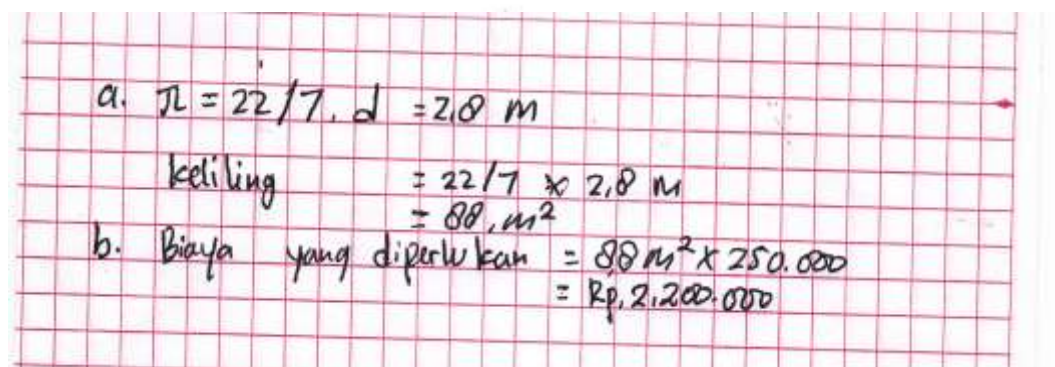 a. π = 22/7, d = 2,8 m
keliling = 22/7 × 2,8 m
= 88, m²
b. Biaya yang diperlukan = 88 m² × 250.000
= Rp, 2.200.000